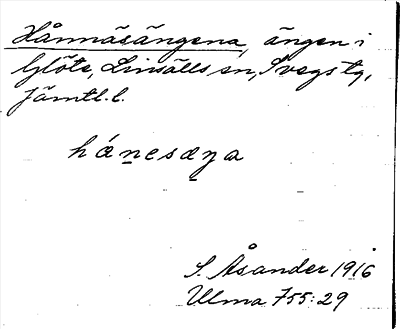 Hånnäsängena, ängen i
Glöte, Linsälls sn, Svegs tg,
Jämtl. l.
háṉesæṉa
S. Åsander 1916
Ulma 755:29